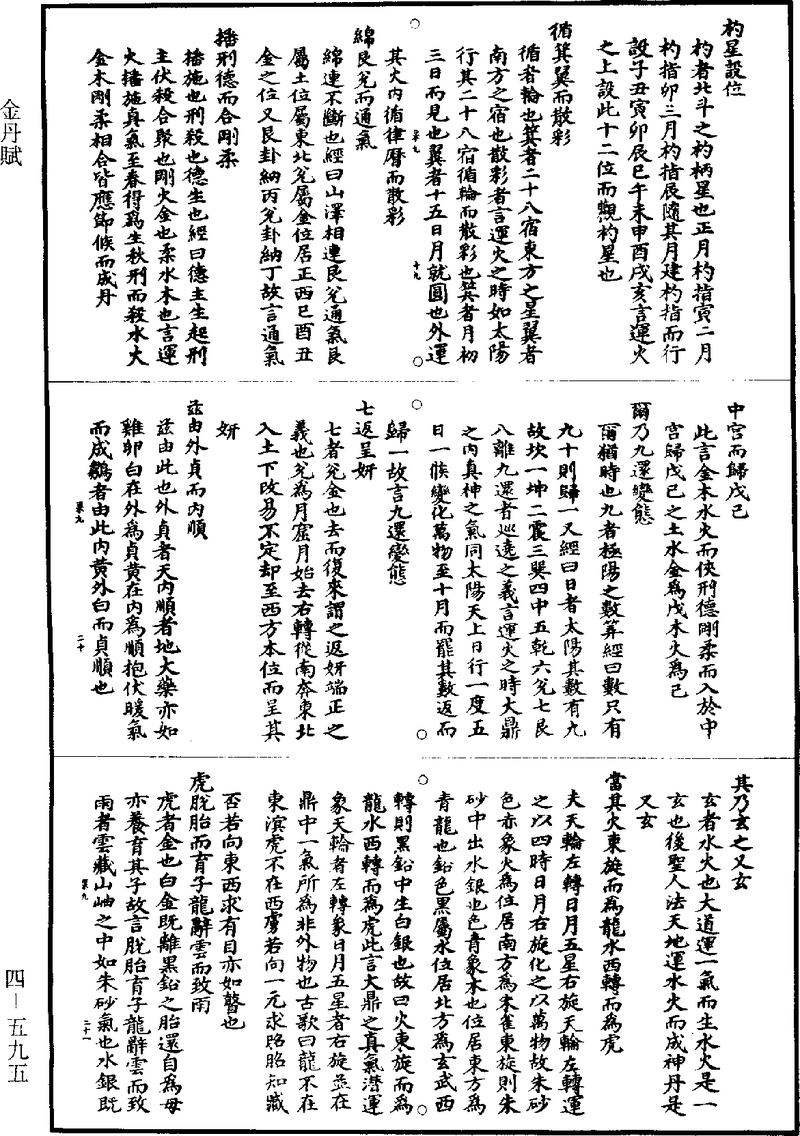 金丹賦
四－五九五
杓星設位
杓者北斗之杓柄星也正月杓指寅二月
杓指卯三月杓指辰隨其月建杓指而行
設子丑寅卯辰巳午未申酉戌亥言運火
之上設此十二位而觀杓星也
循箕翼而散彩
循者輪也箕者二十八宿東方之星翼者
南方之宿也散彩者言運火之時如太陽
行其二十八宿循輪而散彩也箕者月初
三日而見也翼者十五日月就圓也外運
杲九　十九
其火內循律曆而散彩
綿艮兌而通氣
綿連不斷也經曰山澤相連艮兌通氣艮
屬土位屬東北兌屬金位居正西巳酉丑
金之位又艮卦納丙兌卦納丁故言通氣
播刑德而合剛柔
播施也刑殺也德生也經曰德主生起刑
主伏殺合聚也剛火金也柔水木也言運
火播施真氣至春得爲生秋刑而殺水火
金木剛柔相合皆應節候而成丹
中宮而歸戊己
此言金木水火而俠刑德剛柔而入於中
宮歸戊己之土水金爲戊木火爲己
爾乃九還變態
爾猶時也九者極陽之數筭經曰數只有
九十則歸一又經曰日者太陽其數有九
故坎一坤二震三巽四中五乾六兌七艮
八離九還者巡遶之義言運火之時大鼎
之內真神之氣同太陽天上日行一度五
日一候變化萬物至十月而罷其數返而
歸一故言九還變態
七返呈妍
七者兌金也去而復來謂之返妍端正之
義也兌爲月窟月始去右轉從南奔東北
入土下改易不定却至西方本位而呈其
妍
茲由外貞而內順
茲由此也外貞者天內順者地大藥亦如
雞卵白在外爲貞黃在內爲順抱伏暖氣
而成鷄者由此內黃外白而貞順也
杲九　二十
其乃玄之又玄
玄者水火也大道運一氣而生水火是一
玄也後聖人法天地運水火而成神丹是
又玄
當其火東旋而爲龍水西轉而爲虎
夫天輪左轉日月五星右旋天輪左轉運
之以四時日月右旋化之以萬物故朱砂
色赤象火爲位居南方爲朱雀東旋則朱
砂中出水銀也色青象木也位居東方爲
青龍也鉛色黑屬水位居北方爲玄武西
轉則黑鉛中生白銀也故曰火東旋而爲
龍水西轉而爲虎此言大鼎之真氣潛運
象天輪者左轉象日月五星者右旋並在
鼎中一氣所爲非外物也古歌曰龍不在
東濱虎不在西虜若向一元求昭昭知藏
否若向東西求有目亦如瞽也
虎脫胎而育子龍辭雲而致雨
虎者金也白金既離黑鉛之胎還自爲母
亦養育其子故言脫胎育子龍辭雲而致
雨者雲藏山岫之中如朱砂氣也水銀既
杲九　二十一